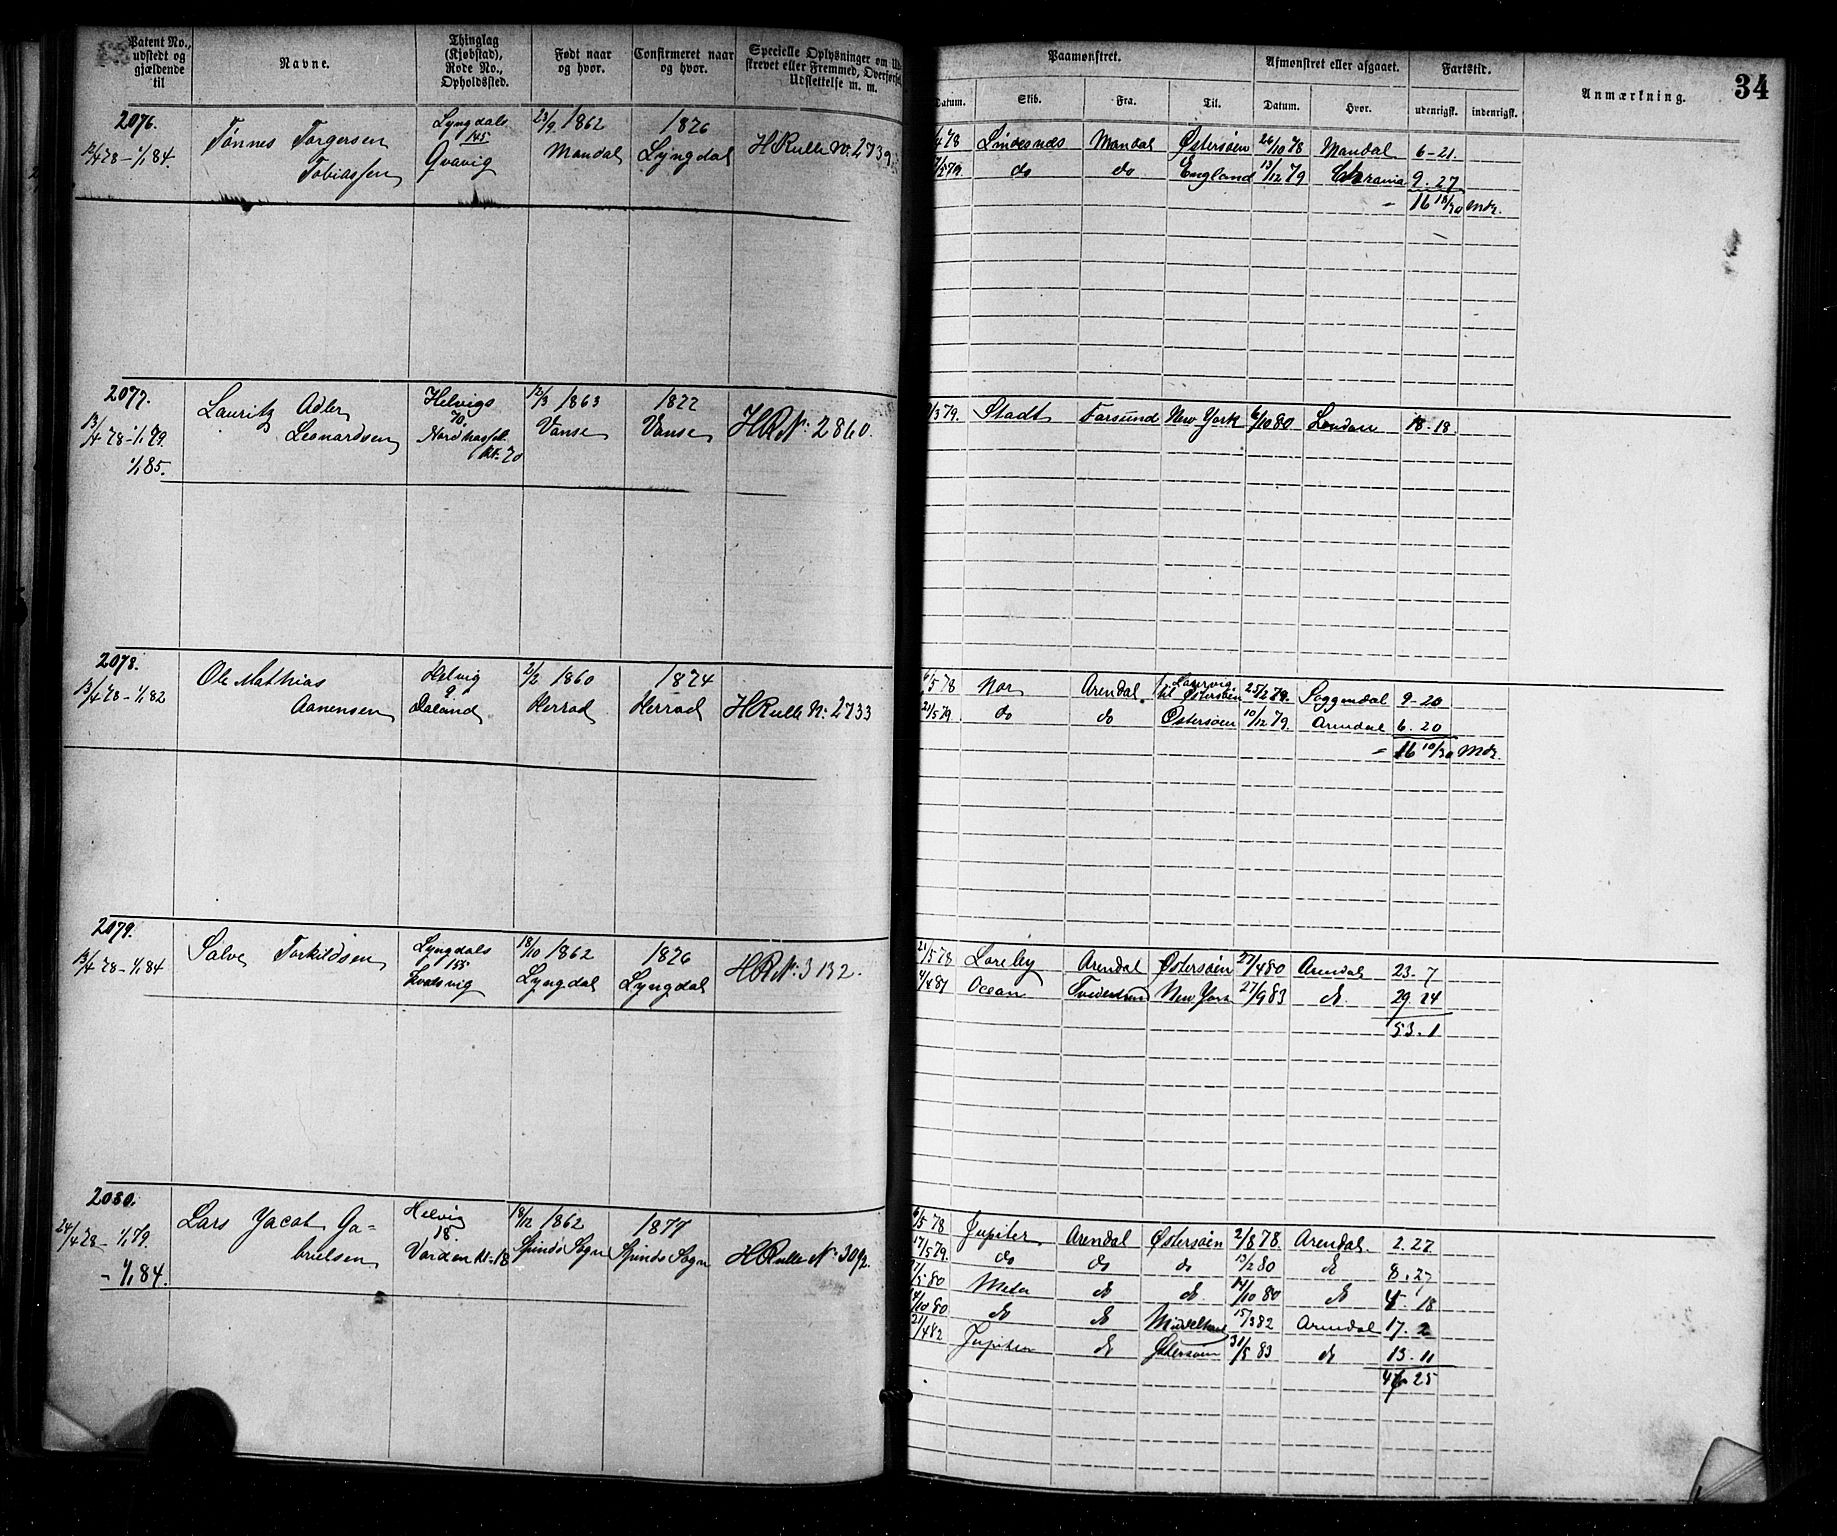 Patent No., udstedt og gjældende til
Navne.
Thinglag (Kjøbstad), Rode No., Opholdssted.
Født naar og hvor.
Confirmeret naar og hvor.
Specielle Oplysninger om
strevet eller Fremmed, Overførsel
Udslettelse m. m.
Paamønstret.
Afmønstret eller afgaaet.
Fartstid.
Anmærkning.
34
Datum.
Skib.
Fra.
Til.
Datum.
Hvor.
udenrigsk.
indenrigsk.
2076.
12/4 78 – 1/1 84
Tønnes Torgersen
Tobiassen
Lyngdals
145
Qvavig
23/9 1862
Mandal
1876
Lyngdal
H Rulle No 2739
/4 78 Lindesnæs Mandal Østersøen 26/10 78 Mandal 6-21
/5 79 do do England 13/12 79 9. 27
= 16 18/30 Mdr.
2077.
13/4 78 – 1/1 79.
1/1 85.
Lauritz Adler
Leonardsen
Helvigs
70
Nordhassel
Kt. 70
12/3 1863
Vanse
1877
Vanse
H R N: 2860.
/3 79. Stadt Farsund New York 6/10 80 London 18-18
2078.
13/4 78 – 1/1 82
Ole Mathias
Aanensen
Helvig
9
Daland
2/2 1860
Herrad
1874
Herrad
H Rulle N: 2733
6/5 78 Nor Arendal Laurvig
til Østersøen 25/2 79. Soggendal 9-20
21/5 79 do do Østersøen 10/12 79 Arendal 6. 20
= 16 10/30 Mdr.
2079.
13/4 78 – 1/1 84
Salve Torkildsen
Lyngdals
155
Kvalsvig
18/10 1862
Lyngdal
1876
Lyngdal
H R N: 3132.
21/5 78 Loreley Arendal Østersøen 27/4 80 Arendal 23. 7
4/4 81 Ocean Tvedestrand New York 27/9 83 do 29. 24
53. 1
2080.
24/4 78 – 1/1 79.
- 1/1 84.
Lars Jacob Ga-
brielsen
Helvig
18.
Varden Kt. 18
18/12 1862
Spinds Sogn
1877
Spinds Sogn
H Rulle N: 3092.
6/5 78 Jupiter Arendal Østersøen 2/8 78. Arendal. 2. 27
17/5 79. do do do 13/2 80 do 8. 27
/5 80 Meta do do 14/10 80 do 4. 18
/10 80 do do Middelhavet 15/3 82 Arendal 17. 2
21/4 82 Jupiter do Østersøen 31/5 83 do 13. 11
46 25